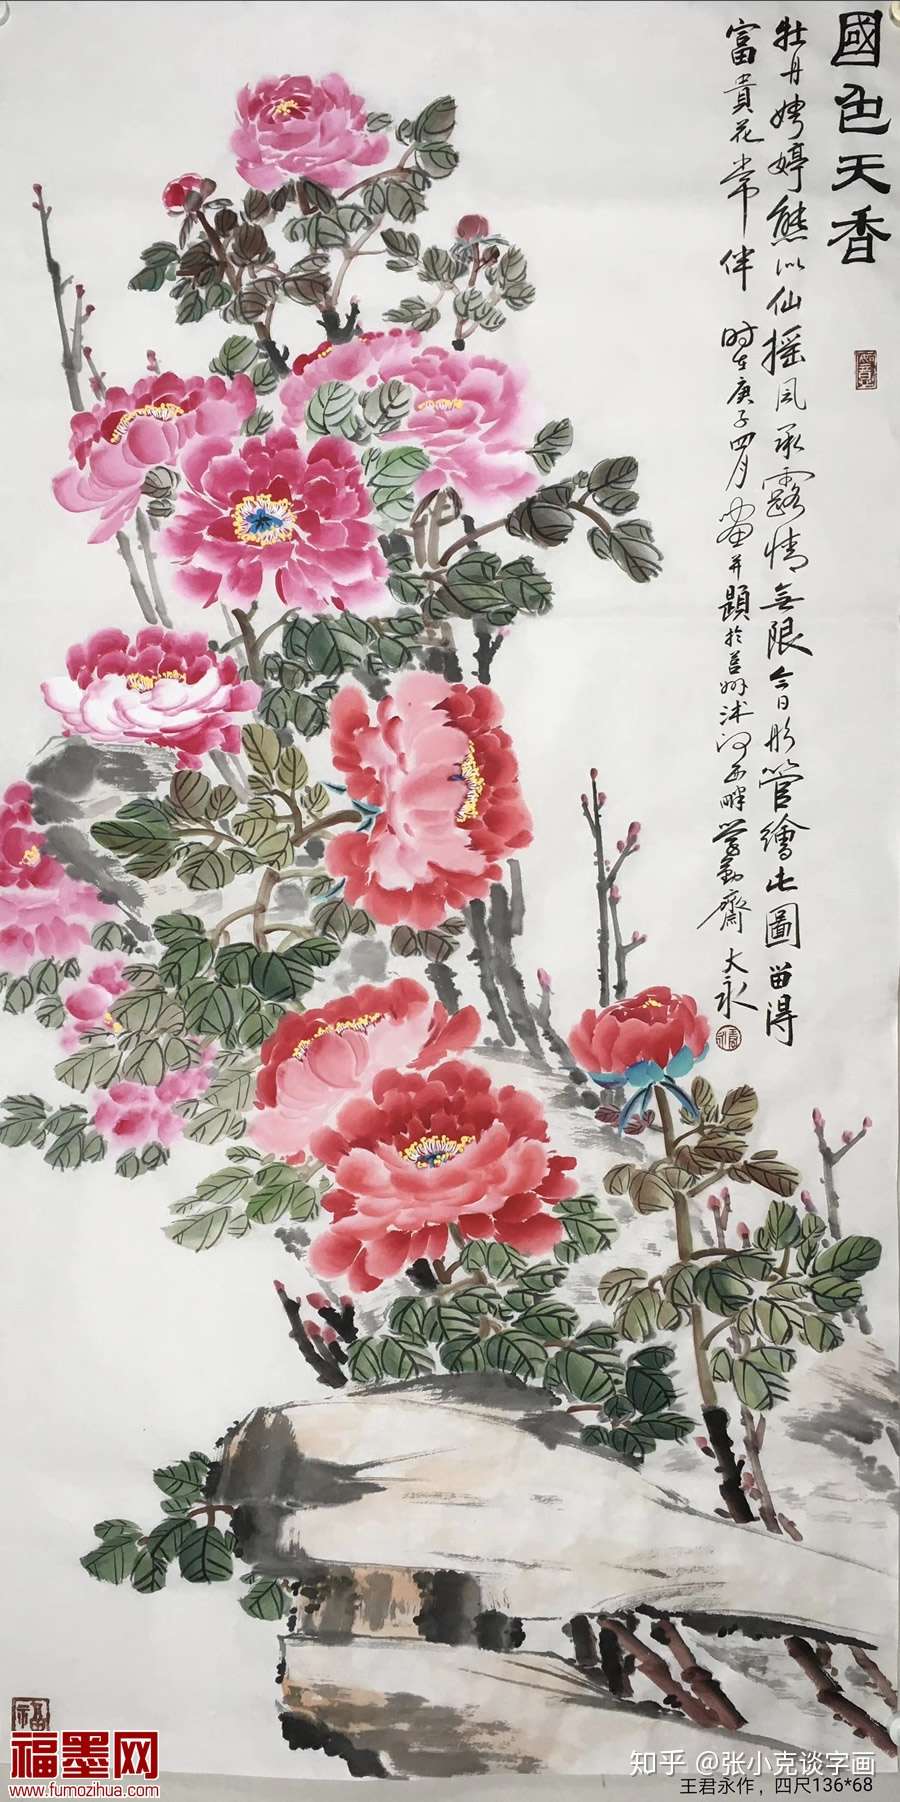 國色天香
牡丹娉婷態似仙摇風承露情無限今日彤管繪此圖留得
富貴花常伴
時在庚子四月畫并題於莒州沭河西畔學勤齋 大永
福墨网
www.fumozihua.com
知乎 @张小克谈字画
王君永作，四尺136*68